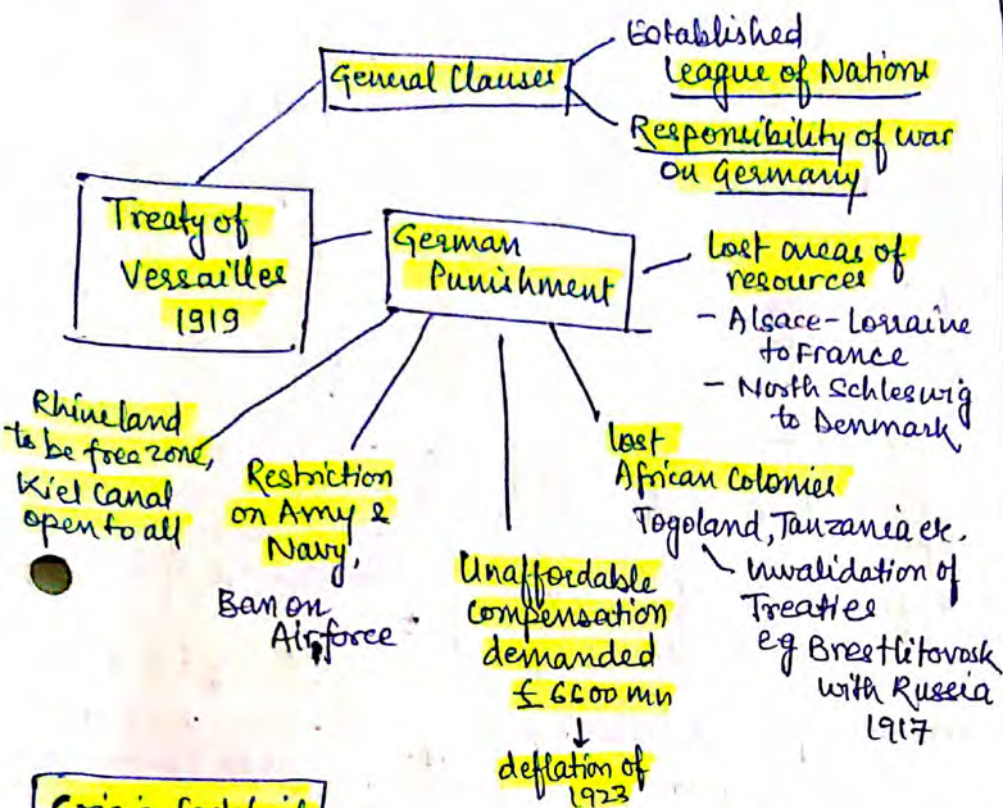 General Clauses
Established
League of Nations
Responsibility of war
on Germany
Treaty of
Versailles
1919
German
Punishment
Lost areas of
resources
- Alsace-Lorraine
to France
- North Schleswig
to Denmark
Rhineland
to be free zone,
Kiel Canal
open to all
Restriction
on Army &
Navy,
Ban on
Airforce
Unaffordable
compensation
demanded
£ 6600 mn
↓
deflation of
1923
Lost
African Colonies
Togoland, Tanzania etc.
Invalidation of
Treaties
eg Brestlitovosk
with Russia
1917